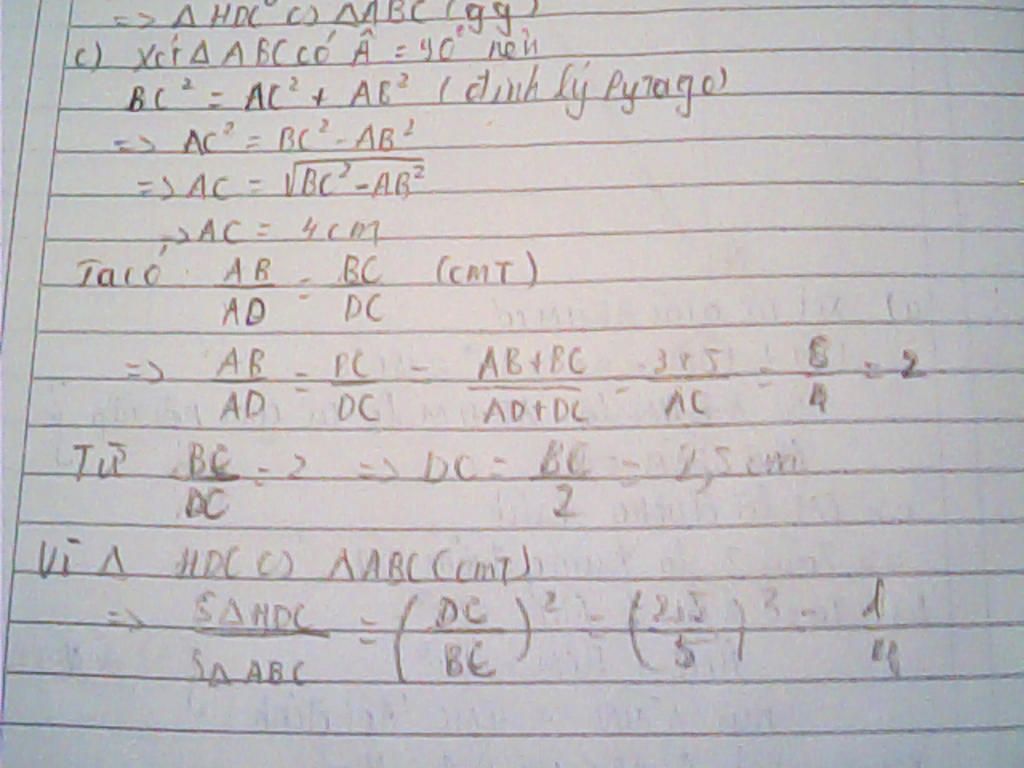 => Δ HDC ∽ ΔABC (gg)
c) Xét Δ ABC có Â = 90° nên
BC² = AC² + AB² (định lý Pytago)
=> AC² = BC² - AB²
=> AC = √BC² - AB²
=> AC = 4cm
Ta có AB/AD = BC/DC (cmT)
=> AB/AD = BC/DC = AB+BC/AD+DC = 3+5/AC = 8/4 = 2
Từ BC/DC = 2 => DC = BC/2 = 2,5 cm
Vì Δ HDC ∽ ΔABC (cmT)
=> SΔHDC/SΔABC = (DC/BC)² = (2,5/5)² = 1/4